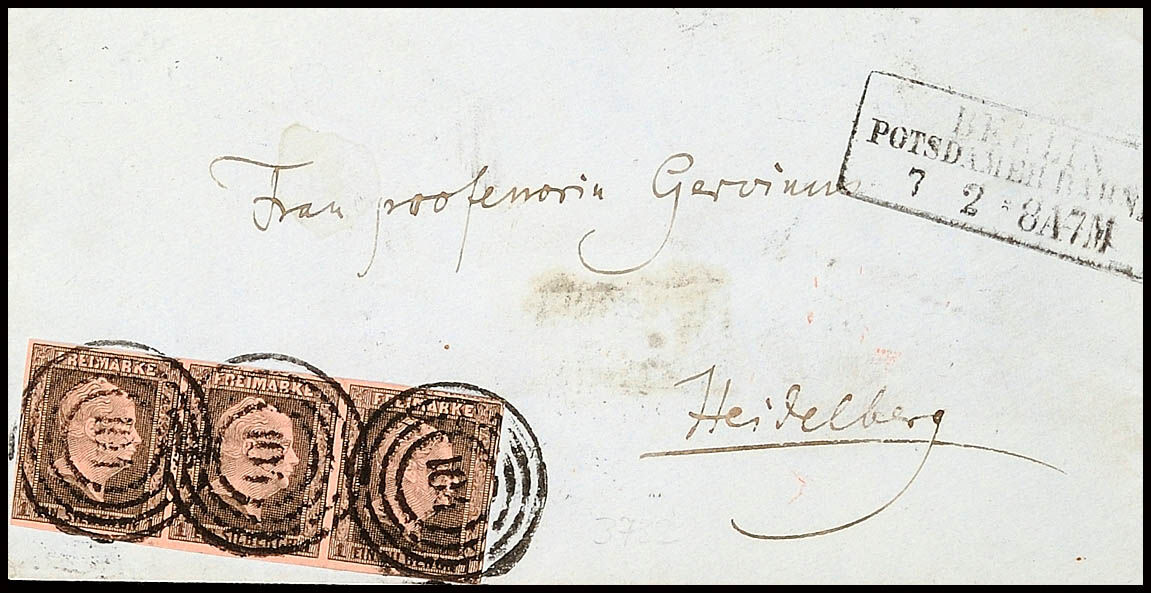 BERLIN
POTSDAMER BAHN
7 2 * 8A7M
Frau professorin Gervinus
Heidelberg
3752
FREIMARKE FREIMARKE FREIMARKE